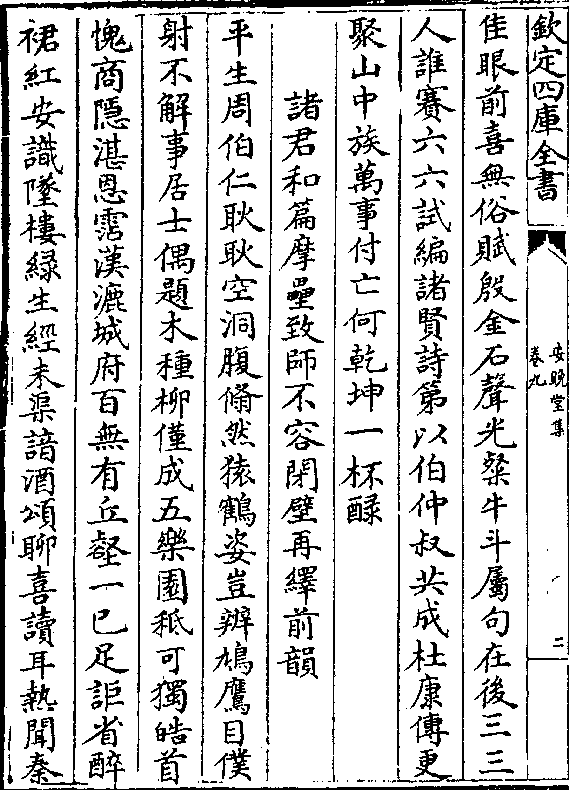 欽定四庫全書
安晚堂集
卷九
二
佳眼前喜無俗賦殷金石聲光粲牛斗屬句在後三三
人誰賽六六試編諸賢詩第以伯仲叔共成杜康傳更
聚山中族萬事付亡何乾坤一杯醁
諸君和篇摩壘致師不容閉壁再繹前韻
平生周伯仁耿耿空洞腹翛然猿鶴姿豈辨鳩鷹目僕
射不解事居士偶題木種柳僅成五樂園秪可獨皓首
愧商隱湛恩霑漢漉城府百無有丘壑一已足詎省醉
裙紅安識墜樓緑生經未渠諳酒頌聊喜讀耳熱聞秦